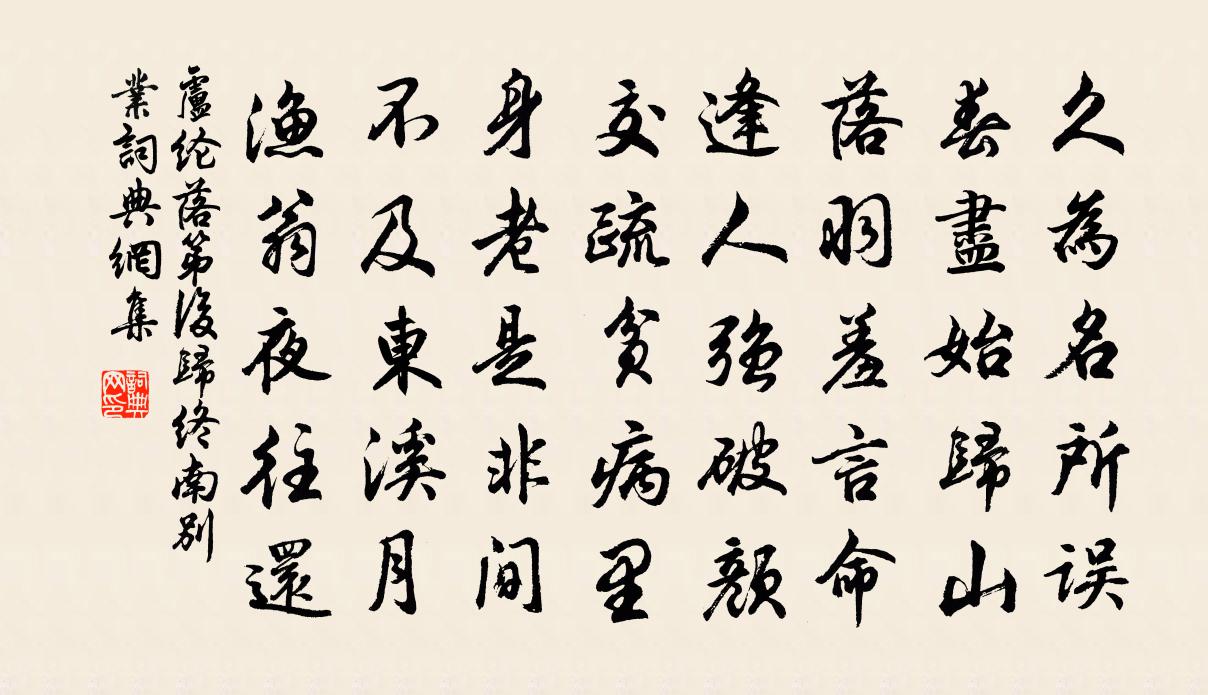 久為名所误
春盡始歸山
落羽羞言命
逢人强破顏
交疏貧病里
身老是非間
不及東溪月
漁翁夜往還
盧纶落第後歸终南別
業詞典網集
詞典
网印